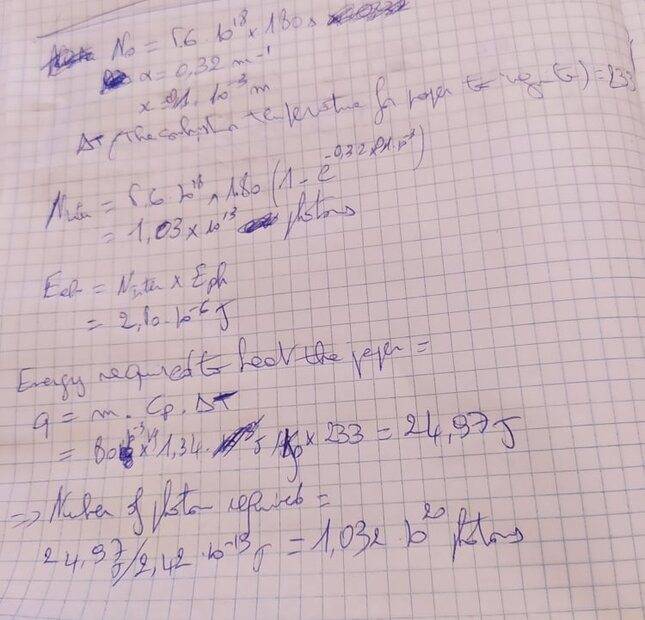 N₀ = 5.6 10¹⁸ x 180 x
α = 0,32 m⁻¹
x = 91. 10⁻³ m
ΔT (The combustion temperature for paper to ignite) = 233
= 5.6 10¹⁸ x 180 (1 - e^-0.32 x 91.10⁻³)
= 1,03 x 10¹³ photons
= N x Eph
= 2,10. 10⁻⁶ J
Energy required to heat the paper =
q = m. Cp. ΔT
= 80 10⁻³ x 1,34. J/ x 233 = 24,97 J
=> Number of photon required =
24,97/2,42 . 10⁻¹⁹ J = 1,032 . 10²⁰ photons